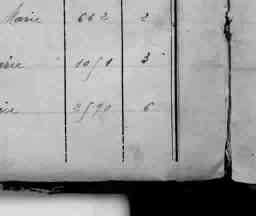 Marie 662 2
arie 1051 3
rie 2590 6